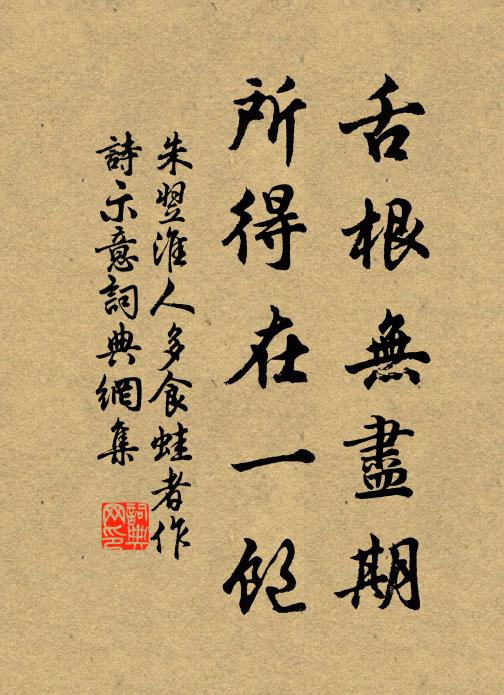 舌根無盡期
所得在一飽
朱翌淮人多食蛙者作
詩示意詞典網集
詞典
网印